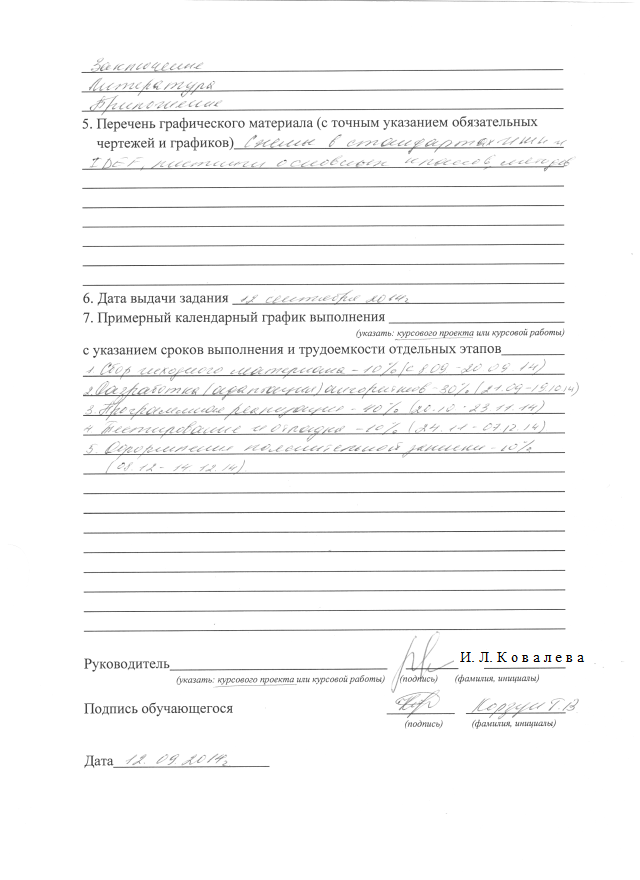 Заключение
Литература
Приложение
5. Перечень графического материала (с точным указанием обязательных
чертежей и графиков) Схемы в стандартах
IDEF, листинги основных
6. Дата выдачи задания 12 сентября 2014г
7. Примерный календарный график выполнения
(указать: курсового проекта или курсовой работы)
с указанием сроков выполнения и трудоемкости отдельных этапов
1. Сбор исходного материала – 10% (с 8.09 - 20.09.14)
2. Разработка (адаптация) алгоритмов - 30% (21.09 - 19.10.14)
3. Программная реализация - 40% (20.10 - 23.11.14)
4. Тестирование и отладка – 10% (24.11 - 07.12.14)
5. Оформление пояснительной записки - 10%
(08.12 - 14.12.14)
Руководитель И. Л. Ковалева
(указать: курсового проекта или курсовой работы) (подпись) (фамилия, инициалы)
Подпись обучающегося Корзун Т.В
(подпись) (фамилия, инициалы)
Дата 12.09.2014г